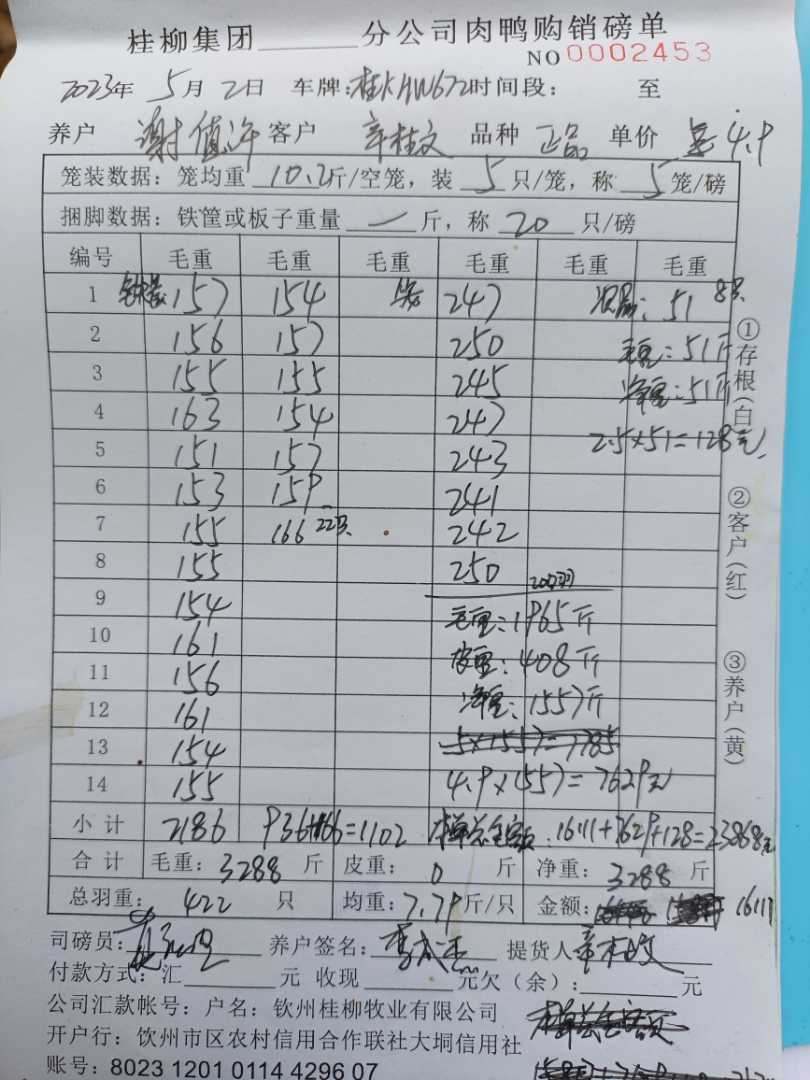 桂柳集团______分公司肉鸭购销磅单
NO 0002453
2023年 5月 2日 车牌:桂KHW672 时间段: 至
养户 谢值许 客户 辛桂文 品种 正品 单价 4.9
笼装数据: 笼均重 10.2斤/空笼, 装 5 只/笼, 称 5 笼/磅
捆脚数据: 铁筐或板子重量 — 斤, 称 20 只/磅
编号 毛重 毛重 毛重 毛重 毛重 毛重
1 157 154 247 : 51 8只
2 156 157 250 毛重: 51斤
3 155 155 245 净重: 51斤
4 163 154 247 2.5×51=128元
5 151 157 243
6 153 159 241
7 155 166 22只 242
8 155 250 200只
9 154 毛重: 1965斤
10 161 皮重: 408斤
11 156 净重: 1557斤
12 161 5×1557=7785
13 154
14 155 4.9×1557=7629元
小计 2186 936+166=1102 本单总金额: 16111+7629+128=23868元
合计 毛重: 3288 斤 皮重: 0 斤 净重: 3288 斤
总羽重: 422 只 均重: 7.79斤/只 金额: 16111
司磅员: 养户签名: 提货人 辛桂文
付款方式: 汇______元 收现______元欠(余): ______元
公司汇款帐号: 户名: 钦州桂柳牧业有限公司
开户行: 饮州市区农村信用合作联社大垌信用社
账号: 8023 1201 0114 4296 07
①存根(白)
②客户(红)
③养户(黄)